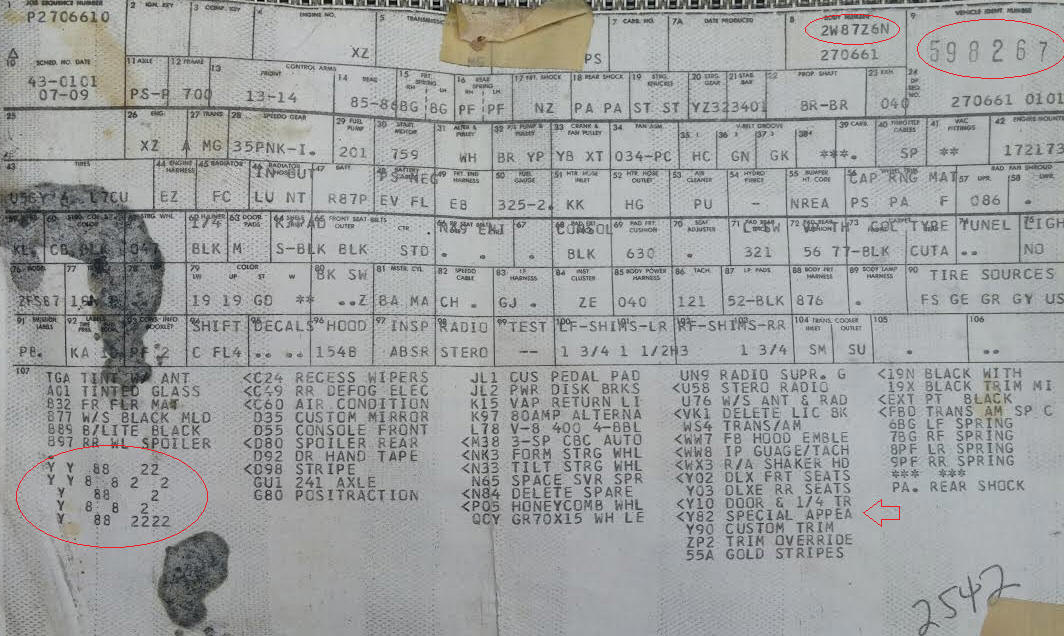 JOB SEQUENCE NUMBER 2 IGN. KEY 3 COMP. KEY 4 ENGINE NO. 5 7 CARB. NO. 7A DATE PRODUCED 8 BODY NUMBER 9 VEHICLE IDENT NUMBER
P2706610 XZ PS 2W87Z6N 598267
270661
10 SCHED. NO. DATE 11 AXLE 12 FRAME 13 CONTROL ARMS FRONT 14 REAR 15 FRT. SPRING RH LH 16 REAR SPRING RH LH 17 FRT. SHOCK 18 REAR SHOCK 19 STRG. KNUCKLES 20 STRG. GEAR 21 STAB. BAR 22 PROP. SHAFT 23 EXH. 24
43-0101
07-09 PS-P 700 13-14 85-86 BG BG PF PF NZ PA PA ST ST YZ323401 BR-BR 040 270661 0101
25 26 ENG. 27 TRANS. 28 SPEEDO GEAR 29 FUEL PUMP 30 START. MOTOR 31 32 33 CRANK & FAN PULLEY 34 FAN ASM. 35 36 V-BELT GROOVE 37 38 39 CARB. 40 THROTTLE CABLES 41 VAC FITTINGS 42 ENGINE MOUNTS
XZ A MG 35PNK-I. 201 759 WH BR YP YB XT 034-PC HC GN GK ***. SP ** 172173
43 TIRES 44 ENGINE HARNESS 45 RADIATOR 46 RADIATOR 47 BATT. 49 FRT. END HARNESS 50 FUEL GAUGE 51 HTR. HOSE INLET 52 HTR. HOSE OUTLET 53 AIR CLEANER 54 55 BUMPER HT. CODE CAP RNG MAT 57 UPR. RAD FAN SHROUD 58 LWR.
L7CU EZ FC LU NT R87P EV FL EB 325-2. KK HG PU - NREA PS PA F 086 .
BLK 047 BLK M S-BLK BLK STD . . BLK 630 . 321 56 77-BLK CUTA .. NO
COLOR BK SW 81 MSTR. CYL. 82 SPEEDO CABLE 83 I.P. HARNESS 84 INST CLUSTER 85 BODY POWER HARNESS 86 TACH. 87 I.P. PADS 88 BODY FRT HARNESS 89 BODY LAMP HARNESS 90 TIRE SOURCES
2FS87 19N 19 19 GD ** ..Z BA MA CH . GJ . ZE 040 121 52-BLK 876 . FS GE GR GY US
91 92 SHIFT DECALS HOOD INSP RADIO TEST LF-SHIMS-LR RF-SHIMS-RR 104 TRANS. COOLER INLET OUTLET 105 106
PB. KA C FL4 .. .. 154B ABSR STERO -- 1 3/4 1 1/2H3 1 3/4 SM SU . .
107
TGA TINT W/ ANT <C24 RECESS WIPERS JL1 CUS PEDAL PAD UN9 RADIO SUPR. G <19N BLACK WITH
A01 TINTED GLASS <C49 RR DEFOG ELEC JL2 PWR DISK BRKS <U58 STERO RADIO 19X BLACK TRIM MI
B32 FR FLR MAT <C60 AIR CONDITION K15 VAP RETURN LI U76 W/S ANT & RAD <EXT PT BLACK
B77 W/S BLACK MLD D35 CUSTOM MIRROR K97 80AMP ALTERNA <VK1 DELETE LIC BK <FBD TRANS AM SP C
B89 B/LITE BLACK D55 CONSOLE FRONT L78 V-8 400 4-BBL WS4 TRANS/AM 6BG LF SPRING
B97 RR WL SPOILER <D80 SPOILER REAR <M38 3-SP CBC AUTO <WW7 FB HOOD EMBLE 7BG RF SPRING
D92 DR HAND TAPE <NK3 FORM STRG WHL <WW8 IP GUAGE/TACH 8PF LR SPRING
Y Y 88 22 <D98 STRIPE <N33 TILT STRG WHL <WX3 R/A SHAKER HD 9PF RR SPRING
Y Y 8 8 2 2 GU1 241 AXLE N65 SPACE SVR SPR <Y02 DLX FRT SEATS *** ***
Y 88 2 G80 POSITRACTION <N84 DELETE SPARE Y03 DLXE RR SEATS PA. REAR SHOCK
Y 8 8 2 <P05 HONEYCOMB WHL <Y10 DOOR & 1/4 TR
Y 88 2222 QCY GR70X15 WH LE <Y82 SPECIAL APPEA
Y90 CUSTOM TRIM
ZP2 TRIM OVERRIDE
55A GOLD STRIPES
2542